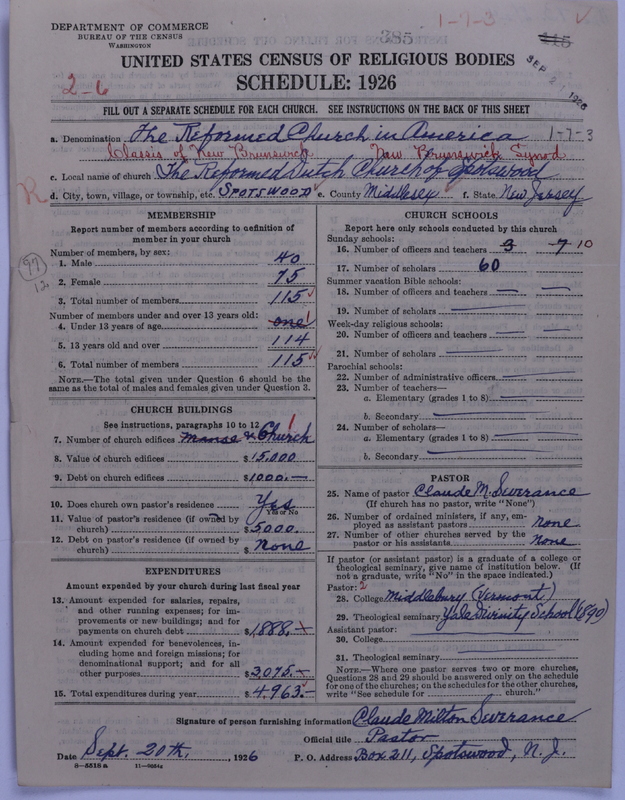 DEPARTMENT OF COMMERCE
BUREAU OF THE CENSUS
WASHINGTON
385
1-7-3
415
SEP 2 1926
UNITED STATES CENSUS OF RELIGIOUS BODIES
SCHEDULE: 1926
2-6
FILL OUT A SEPARATE SCHEDULE FOR EACH CHURCH. SEE INSTRUCTIONS ON THE BACK OF THIS SHEET
a. Denomination The Reformed Church in America 1-7-3
Classis of New Brunswick New Brunswick Synod
c. Local name of church The Reformed Dutch Church of Spotswood
R d. City, town, village, or township, etc. SPOTSWOOD e. County Middlesex f. State New Jersey
MEMBERSHIP
Report number of members according to definition of member in your church
Number of members, by sex:
1. Male 40
2. Female 75
3. Total number of members 115
97
12
Number of members under and over 13 years old:
4. Under 13 years of age one 1
5. 13 years old and over 114
6. Total number of members 115
NOTE.—The total given under Question 6 should be the same as the total of males and females given under Question 3.
CHURCH BUILDINGS
See instructions, paragraphs 10 to 12
7. Number of church edifices Manse & Church 1
8. Value of church edifices $15,000
9. Debt on church edifices $1000.—
10. Does church own pastor's residence Yes
Yes or No
11. Value of pastor's residence (if owned by church) $5000.
12. Debt on pastor's residence (if owned by church) $ None
EXPENDITURES
Amount expended by your church during last fiscal year
13. Amount expended for salaries, repairs, and other running expenses; for improvements or new buildings; and for payments on church debt $1888.—
14. Amount expended for benevolences, including home and foreign missions; for denominational support; and for all other purposes $3,075.—
15. Total expenditures during year $4,963.—
CHURCH SCHOOLS
Report here only schools conducted by this church
Sunday schools:
16. Number of officers and teachers 3 7 10
17. Number of scholars 60
Summer vacation Bible schools:
18. Number of officers and teachers
19. Number of scholars
Week-day religious schools:
20. Number of officers and teachers
21. Number of scholars
Parochial schools:
22. Number of administrative officers
23. Number of teachers—
a. Elementary (grades 1 to 8)
b. Secondary
24. Number of scholars—
a. Elementary (grades 1 to 8)
b. Secondary
PASTOR
25. Name of pastor Claude M. Severance
(If church has no pastor, write "None")
26. Number of ordained ministers, if any, employed as assistant pastors none
27. Number of other churches served by the pastor or his assistants None
If pastor (or assistant pastor) is a graduate of a college or theological seminary, give name of institution below. (If not a graduate, write "No" in the space indicated.)
Pastor: 2
28. College Middlebury (Vermont)
29. Theological seminary Yale Divinity School (1890)
Assistant pastor:
30. College
31. Theological seminary
NOTE.—Where one pastor serves two or more churches, Questions 28 and 29 should be answered only on the schedule for one of the churches; on the schedules for the other churches, write "See schedule for church."
Signature of person furnishing information Claude Milton Severance
Official title Pastor
Date Sept. 20th, 1926 P. O. Address Box 211, Spotswood, N. J.
8—5518 a 11—9654a